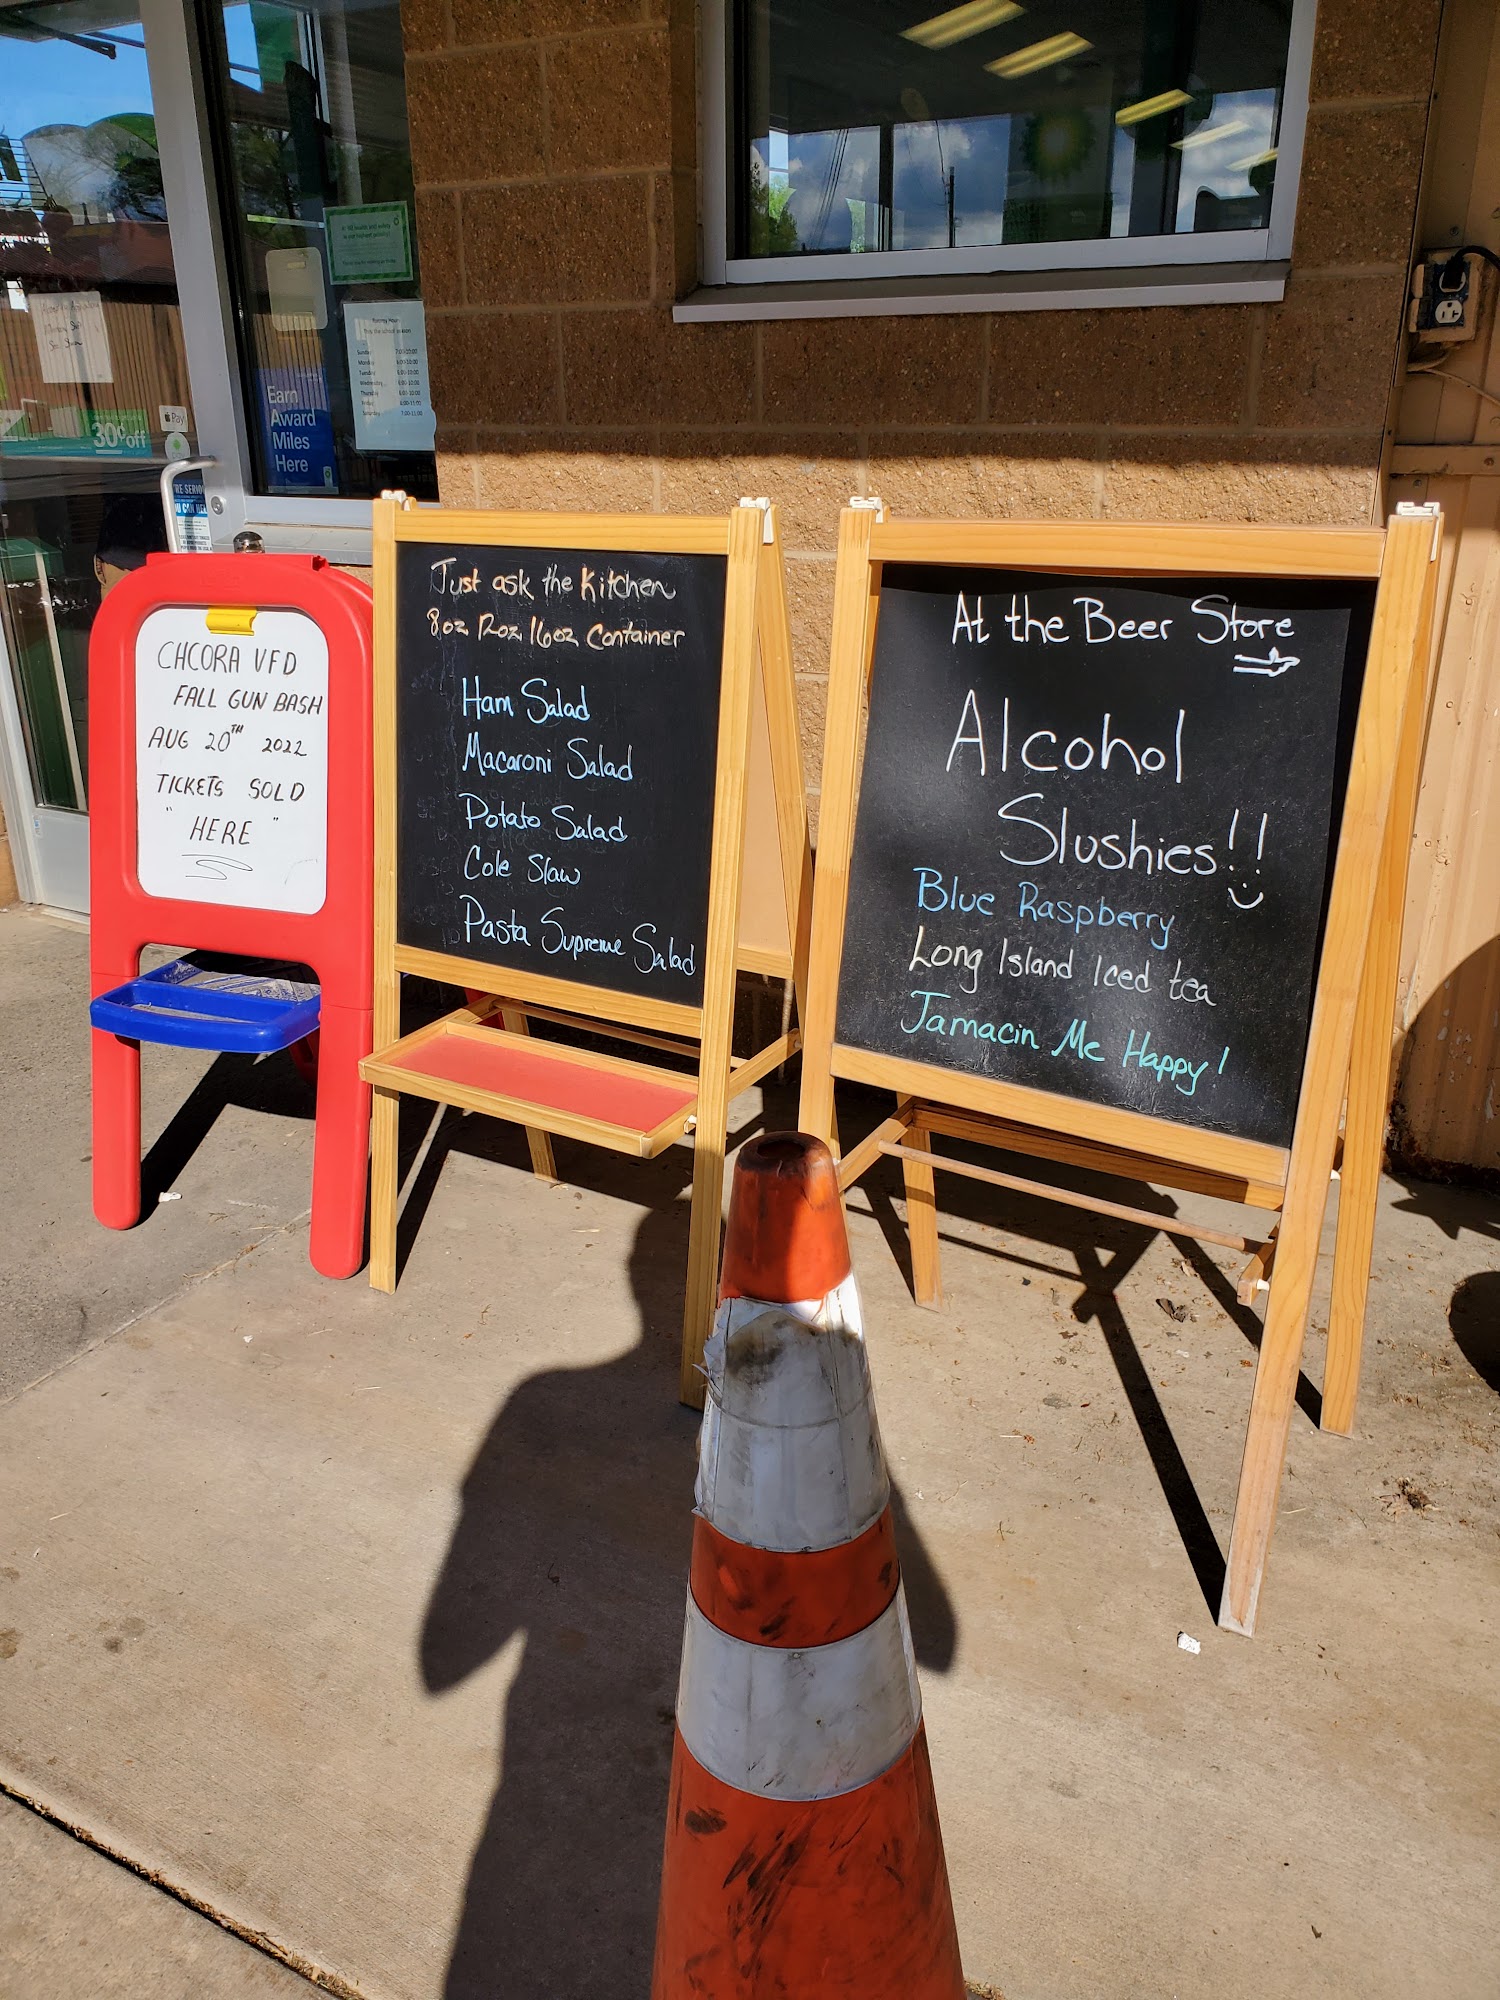 CHCORA VFD
FALL GUN BASH
AUG 20TH 2022
TICKETS SOLD
"HERE"
Just ask the Kitchen
8oz 12oz 16oz Container
Ham Salad
Macaroni Salad
Potato Salad
Cole Slaw
Pasta Supreme Salad
At the Beer Store
Alcohol
Slushies!!
Blue Raspberry
Long Island Iced tea
Jamacin Me Happy!
Earn
Award
Miles
Here
30¢ off
Pay
Sunday
Monday
Tuesday
Wednesday
Thursday
Friday
Saturday